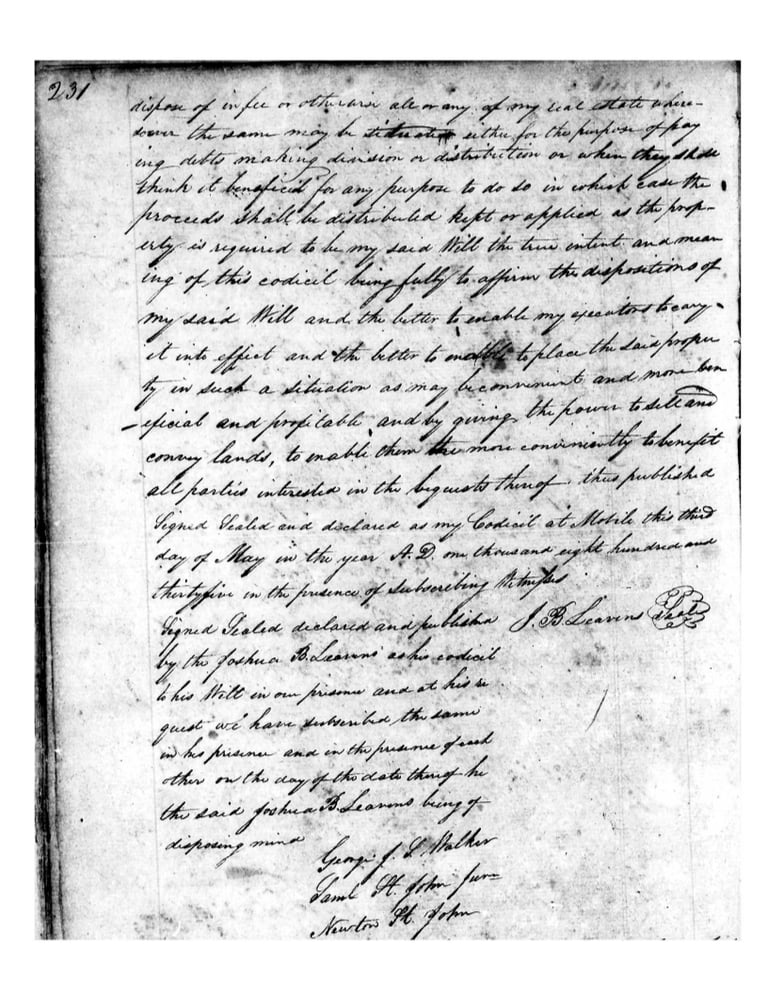 231
dispose of in fee or otherwise all or any of my real estate where-
soever the same may be situated either for the purpose of pay
ing debts making division or distribution or when they shall
think it beneficial for any purpose to do so in which case the
proceeds shall be distributed kept or applied as the prop-
erty is required to be my said Will the true intent and mean
ing of this codicil being fully to affirm the dispositions of
my said Will and the better to enable my executors to cary
it into effect and the better to enable to place the said proper
ty in such a situation as may be convenient and more ben
eficial and profitable and by giving the power to sell and
convey lands, to enable them the more conveniently to benefit
all parties interested in the bequests thereof thus published
Signed Sealed and declared as my Codicil at Mobile this third
day of May in the year A.D. one thousand eight hundred and
thirtyfive in the presence of subscribing Witnesses
Signed Sealed declared and published J. B. Leavens Seal
by the Joshua B. Leavens as his codicil
to his Will in our presence and at his re
quest we have subscribed the same
in his presence and in the presence of each
other on the day of the date thereof he
the said Joshua B. Leavens being of
disposing mind
George J. S. Walker
Saml St. John Junr
Newton St. John